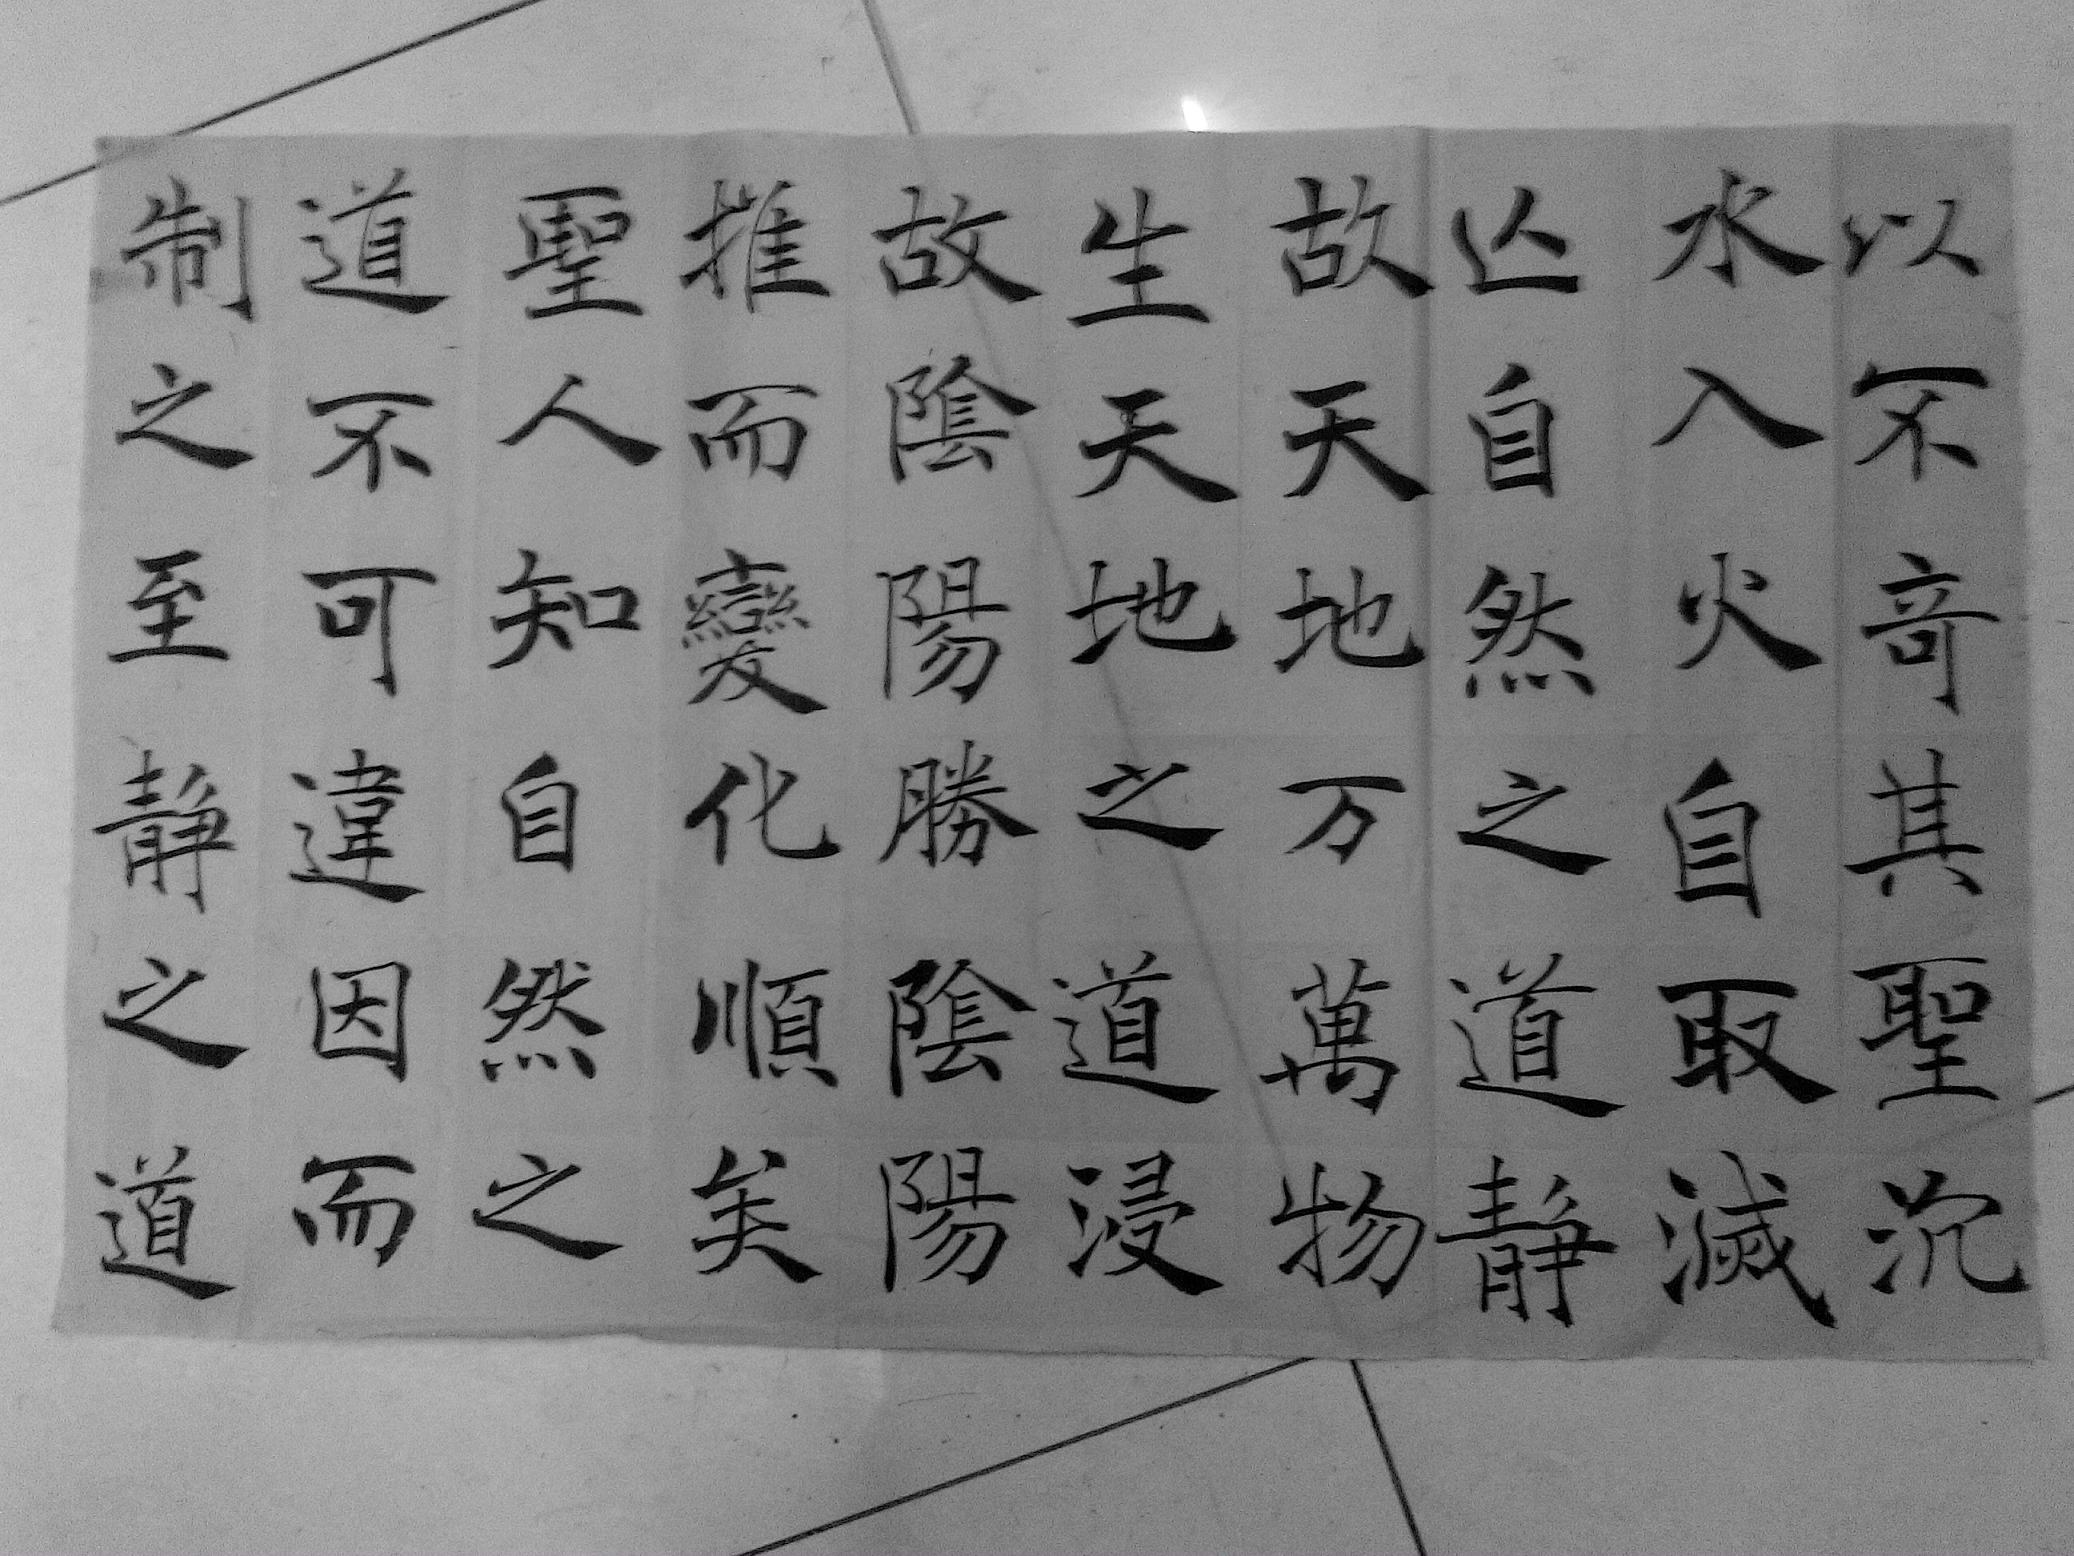 以不竒其聖沉
水入火自取滅
亾自然之道静
故天地万萬物
生天地之道浸
故陰陽勝陰陽
推而變化順矣
聖人知自然之
道不可違因而
制之至静之道